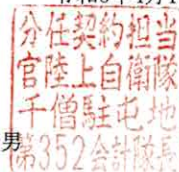 分任契約担当
官陸上自衛隊
千僧駐屯地
男
第352会計隊長